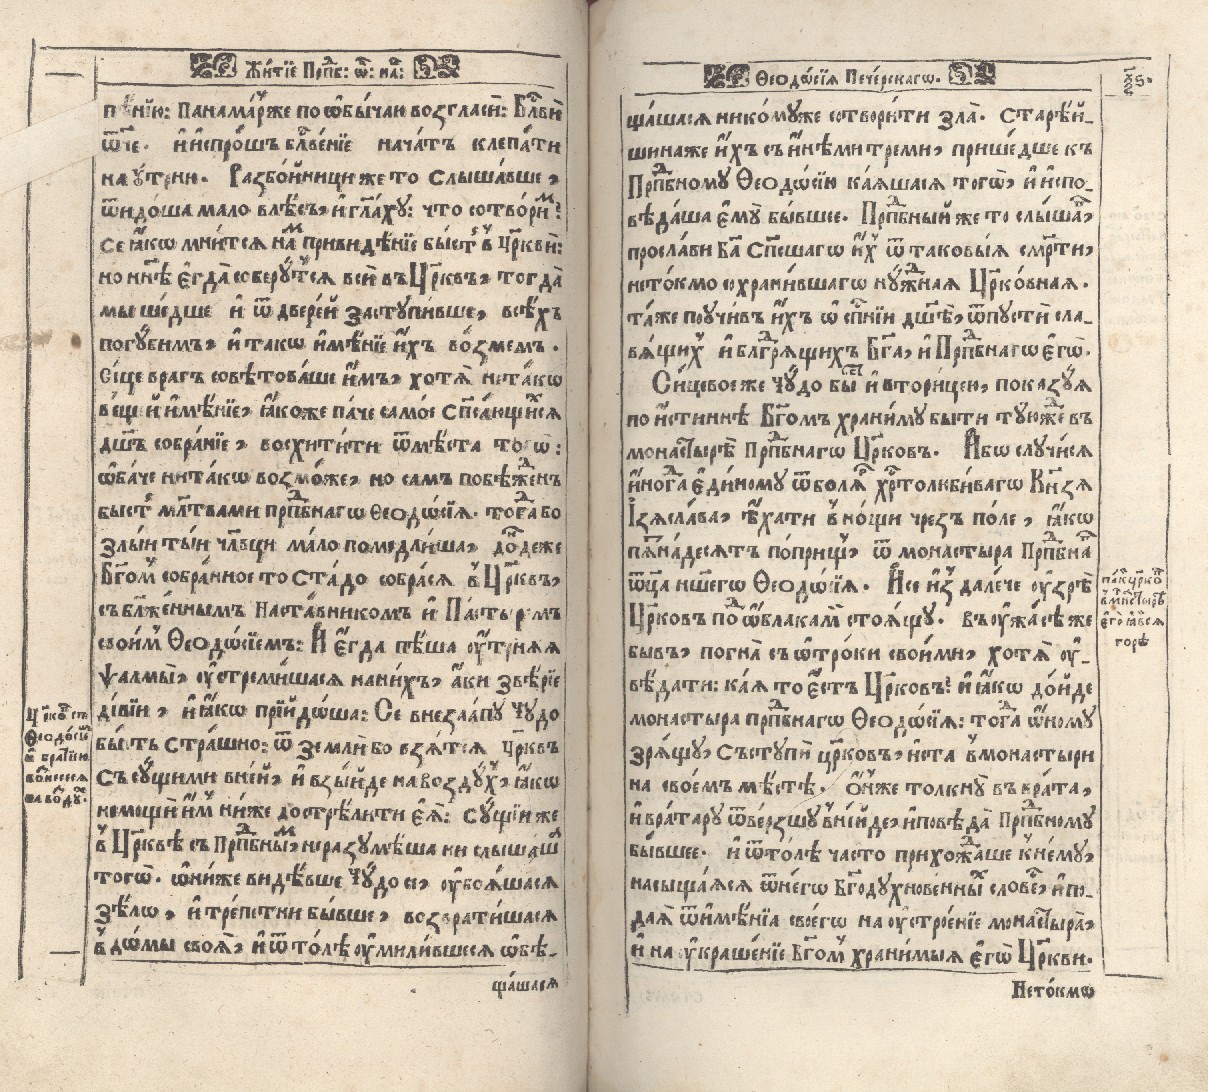 Житїе Прпⷣб: ѡ҃: на́:
пѣнїю: Панама́рже по ѡбы́чаю возгласи̑: Блⷭ҇ви̑
ѿче. и҆ испро́шъ блⷭ҇ве́нїе нача́тъ клепа́ти
на ᲂу҆́трни. Разбо́йници же то слыша́вше,
ѿидо́ша мало влѣ́съ, и҆ гл҃аху: что сотвори́мъ!
Се ꙗ҆́кѡ мни́тся на́мъ привидѣ́нїе бы́стъ в̾ Цр҃кви̑:
но нн҃ѣ є҆гда̀ соберу́тся всѝ въ Цр҃квъ, тогда̀
мы ше́дше и҆ ѿ двере́й заступи́вше, всѣ́хъ
погу́бимъ, и҆ такѡ и҆мѣ́нїе и҆́хъ во́змемъ.
Си́це врагъ совѣтова́ше и҆́мъ, хотя̀ нета́кѡ
ве́щей и҆мѣ́нїе, ꙗ҆́коже па́че само́е Сп҃са́ющи́ся
дш҃ъ собра́нїе, восхити́ти ѿ мѣ́ста тогѡ̀:
ѻ҆ба́че ни та́кѡ возмо́же, но самъ побѣжде́нъ
бы́стъ мл҃твами прпⷣбнагѡ Ѳеодо́сїя. тогⷣа бо
злы́и ты́и чл҃вци мало помедли́ша, до́ндеже
Бг҃омъ собра́нное то Ста́до собра́ся в̾ Цр҃квъ,
съ бл҃же́ннымъ Наста́вникомъ и҆ Па́стыремъ
свои́мъ Ѳеодо́сїемъ: И҆ є҆гда пѣ́ша ᲂу҆́тряя
ѱалмы̀, ᲂу҆стреми́шася на ни́хъ, а҆́ки звѣ́рїе
ди́вїи, и҆ ꙗ҆́кѡ прїйдо́ша: Се внеза́апу Чу́до
бы́сть стра́шно: ѿ земли̑ бо взя́тся Цр҃квъ
съ су́щими в не́й, и҆ взы́йде на во́здухъ, ꙗ҆́кѡ
немощи̑ и҆́мъ ни́же достре́лити є҆ѧ̀: су́щїи же
в̾ Цр҃квѣ съ Прпⷣбны́мъ, неразумѣ́ша ни слы́шаша
тогѡ̀. ѻ҆ни́же ви́дѣвше Чу́до се, ᲂу҆боя́шася
зѣ́лѡ, и҆ тре́петни бы́вше, возврати́шася
в̾ до́мы своя̀, и҆ ѿто́лѣ ᲂу҆мили́вшеся ѡ҆бѣ-
ща́шася
Цр҃ковъ съ
Ѳеодо́сїи
и҆ бра́тїею
возне́сеся
на во́здухъ.
Ѳеодо́сїя Пече́рскагѡ.
ща́шася никому́же сотвори́ти зла̀. Старѣ́й-
шина же и҆́хъ съ и҆нѣ́ми треми̑, прише́дше къ
Прпⷣбному Ѳеодо́сїю ка́яшася тогѡ̀, и҆ испо-
вѣ́даша є҆мꙋ̀ бы́вшее. Прпⷣбный же то слы́шавъ,
просла́ви Бг҃а Сп҃сшагѡ и҆́хъ ѿ таковы́я сме́рти,
нето́кмо сохрани́вшагѡ ну́ждная Цр҃ко́вная.
та́же поучи́въ и҆́хъ ѡ҆ сп҃сени́и дш҃ѣ, ѿпусти̑ сла-
вящихъ и҆ блгⷣря́щихъ Бг҃а, и҆ Прпⷣбнагѡ є҆гѡ̀.
Си́цевое же Чу́до бы́сть и҆ вторицею, показу́я
по и҆́стиннѣ Бг҃омъ храни́му бы́ти ту́южде въ
монастырѣ̀ Прпⷣбнагѡ Цр҃ковъ. И҆́бѡ случи́ся
и҆ногда̀ є҆ди́ному ѿ боля́ръ хрⷭ҇толюби́вагѡ Кн҃зя
І҆зясла́ва, ѣ҆́хати в̾ но́щи чрезъ по́ле, ꙗ҆́кѡ
пятьна́десятъ по́прищъ, ѿ монастыра Прпⷣбна
ѿца н҃шегѡ Ѳеодо́сїя. И҆́се и҆зъ дале́че ᲂу҆зрѣ̀
Цр҃ковъ подъ ѻ҆́блакамъ стоя́щу. въ у́жасѣ же
бы́въ, погна̀ съ ѻ҆́троки свои́ми, хотя̀ ᲂу҆-
вѣ́дати: ка́я то є҆́стъ Цр҃ковъ! и҆ ꙗ҆́кѡ до́йде
монастыра прпⷣбнагѡ Ѳеодо́сїя: тогда̀ ѻ҆́ному
зря́щу, Съступи̑ цр҃ковъ, и҆ ста в̾ монастыри
на свое́мъ мѣ́стѣ. Ѻ҆́нже толкну̀ въ врата̀,
и҆ врата́ру ѿве́рзшу в̾ни́йде, и҆ повѣ́да Прпⷣбному
бы́вшее. и҆ ѿто́лѣ ча́сто прихожда́ше к̾ нему̀,
насыща́яся ѿ негѡ̀ Бг҃одухнове́нныхъ слове́съ, и҆ по-
дая̀ ѿ и҆мѣ́нїа своегѡ на ᲂу҆строе́нїе монастыра̀,
и҆ на ᲂу҆краше́нїе Бг҃омъ храни́мыя є҆гѡ̀ Цр҃кви.
Нето́кмѡ
па́къ цр҃ковъ
в̾ мнⷭ҇тырѣ
є҆го̀ ꙗ҆ви́ся
горѣ̀